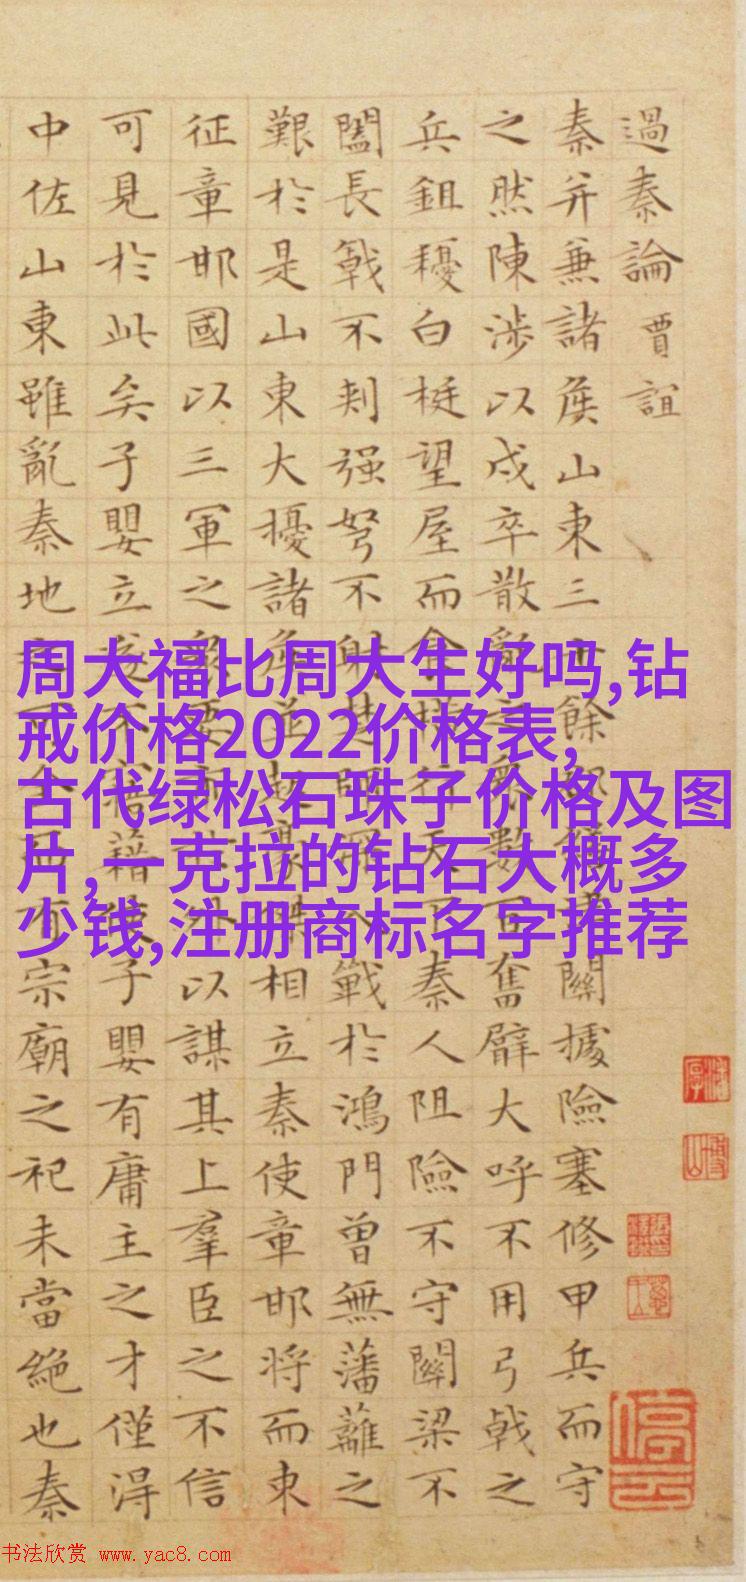 過秦論 賈誼
秦并兼諸侯山東三餘關據險塞修甲兵而守
之然陳涉以戍卒散亂之數百奮臂大呼不用弓戟之
兵鉏耰白梃望屋而食行天下秦人阻險不守關梁不
闔長戟不刺强弩不射楚師戰於鴻門曾無藩籬之
艱於是山東大擾諸侯並起豪傑相立秦使章邯將而東
征章邯國以三軍之要外以謀其上羣臣之不信
可見於此矣子嬰立遂不藉子嬰有庸主之才僅得
中佐山東雖亂秦地全有宗廟之祀未當絕也秦
周大福比周大生好吗,钻
戒价格2022价格表,
古代绿松石珠子价格及图
片,一克拉的钻石大概多
少钱,注册商标名字推荐
停云
书法欣赏 www.yac8.com